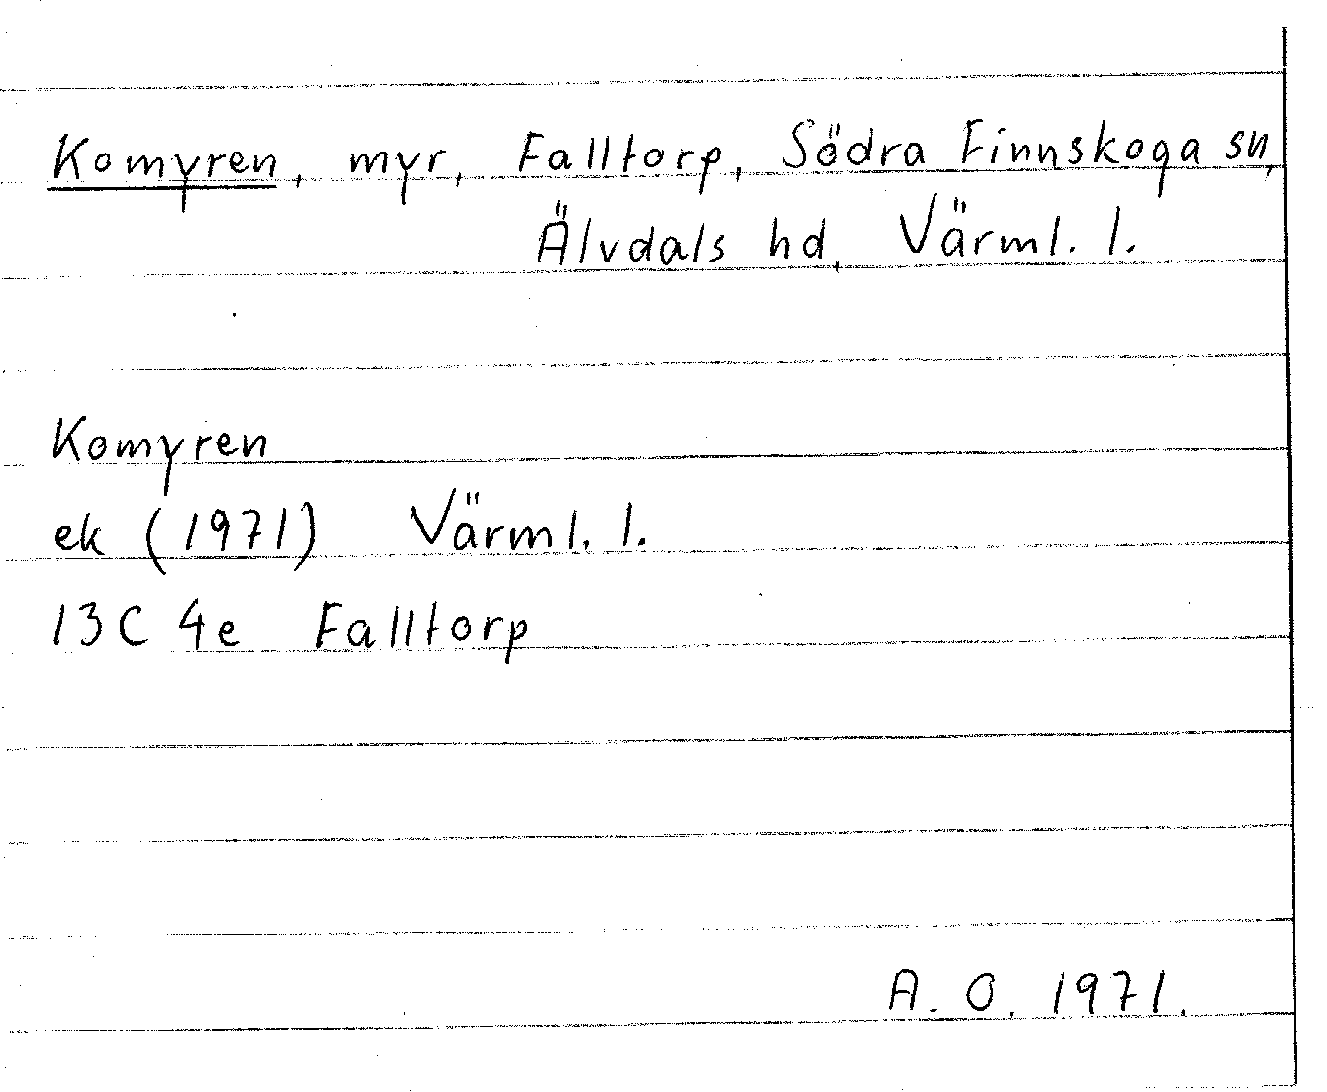 Komyren, myr, Falltorp, Södra Finnskoga sn,
Älvdals hd, Värml. l.
Komyren
ek (1971) Värml. l.
13C 4e Falltorp
A. O. 1971.